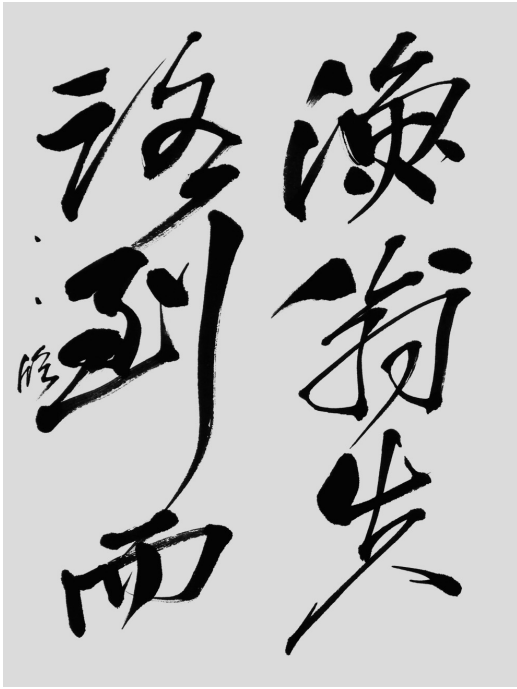 漁翁失
路到而